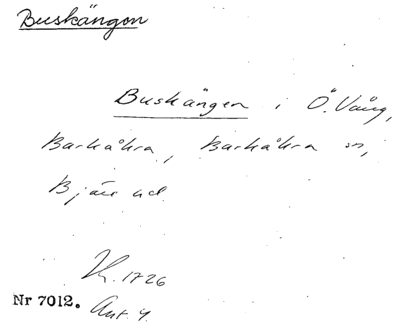 Buskängen
Buskängen i Ö. Vång,
Barkåkra, Barkåkra sn,
Bjäre hd.
Kr. 1726
Nr 7012. Ant. 4.